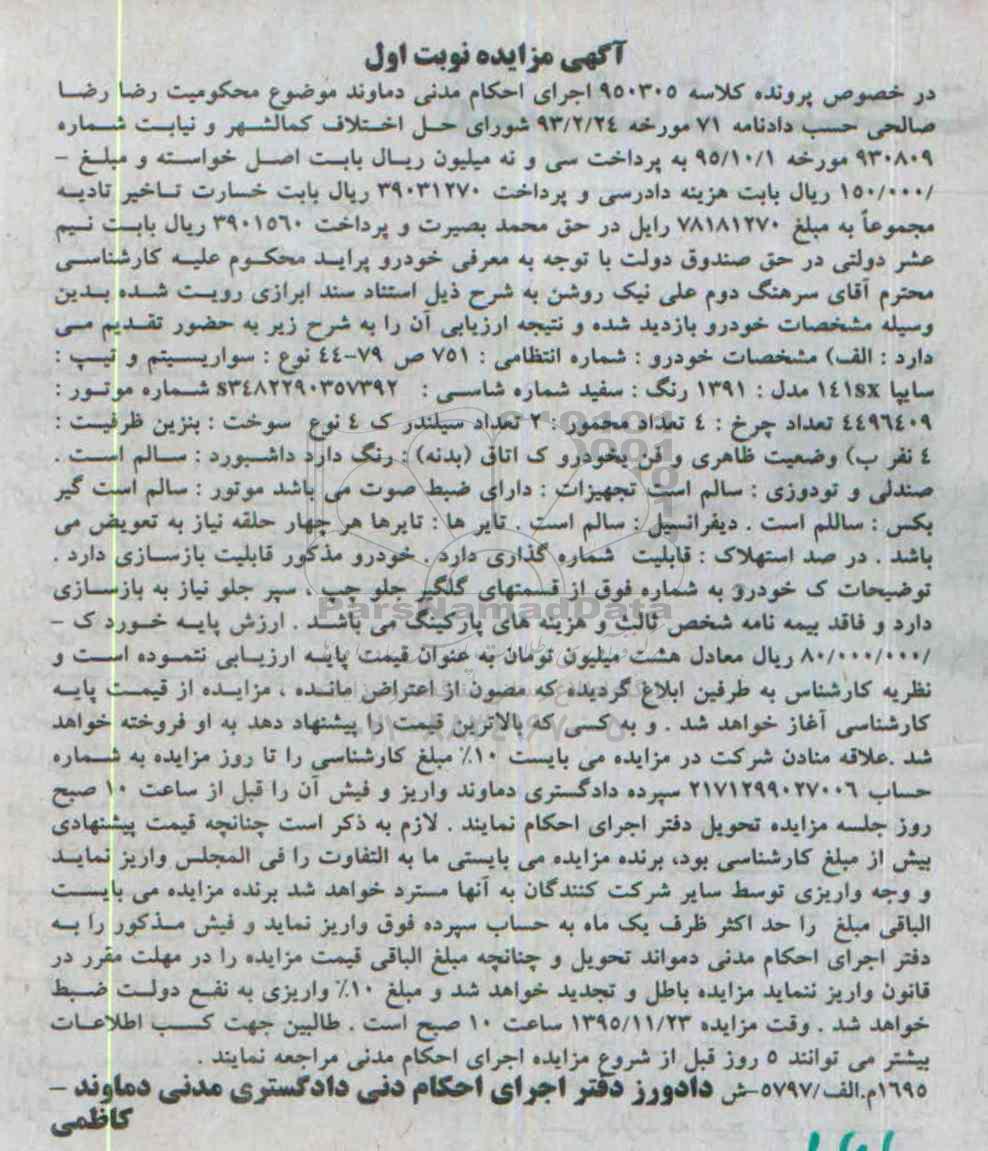 آگهی مزایده نوبت اول
در خصوص پرونده کلاسه ۹۵۰۳۰۵ اجرای احکام مدنی دماوند موضوع محکومیت رضا رضا
صالحی حسب دادنامه ۷۱ مورخه ۹۳/۲/۲٤ شورای حل اختلاف کمالشهر و نیابت شماره
۹۳۰۸۰۹ مورخه ۹۵/۱۰/۱ به پرداخت سی و نه میلیون ریال بابت اصل خواسته و مبلغ –
/۱۵۰/۰۰۰ ریال بابت هزینه دادرسی و پرداخت ۳۹۰۳۱۲۷۰ ریال بابت خسارت تاخیر تادیه
مجموعاً به مبلغ ۷۸۱۸۱۲۷۰ رایل در حق محمد بصیرت و پرداخت ۳۹۰۱۵٦۰ ریال بابت نیم
عشر دولتی در حق صندوق دولت با توجه به معرفی خودرو پراید محکوم علیه کارشناسی
محترم آقای سرهنگ دوم علی نیک روشن به شرح ذیل استناد سند ابرازی رویت شده بدین
وسیله مشخصات خودرو بازدید شده و نتیجه ارزیابی آن را به شرح زیر به حضور تقدیم می
دارد : الف) مشخصات خودرو : شماره انتظامی : ۷۵۱ ص ۷۹-٤٤ نوع : سواریسیتم و تیپ :
سایپا ۱٤۱sx مدل : ۱۳۹۱ رنگ : سفید شماره شاسی : s۳٤۸۲۲۹۰۳۵۷۳۹۲ شماره موتور :
٤٤۹٦٤۰۹ تعداد چرخ : ٤ تعداد محمور : ۲ تعداد سیلندر ک ٤ نوع سوخت : بنزین ظرفیت :
٤ نفر ب) وضعیت ظاهری و فن یخودرو ک اتاق (بدنه) : رنگ دارد داشبورد : سالم است .
صندلی و تودوزی : سالم است تجهیزات : دارای ضبط صوت می باشد موتور : سالم است گیر
بکس : ساللم است . دیفرانسیل : سالم است . تایر ها : تایرها هر چهار حلقه نیاز به تعویض می
باشد . در صد استهلاک : قابلیت شماره گذاری دارد . خودرو مذکور قابلیت بازسازی دارد .
توضیحات ک خودرو به شماره فوق از قسمتهای گلگیر جلو چپ ، سپر جلو نیاز به بازسازی
دارد و فاقد بیمه نامه شخص ثالث و هزینه های پارکینگ می باشد . ارزش پایه خورد ک –
/۸۰/۰۰۰/۰۰۰ ریال معادل هشت میلیون تومان به عنوان قیمت پایه ارزیابی نتموده است و
نظریه کارشناس به طرفین ابلاغ گردیده که مصون از اعتراض مانده ، مزایده از قیمت پایه
کارشناسی آغاز خواهد شد . و به کسی که بالاترین قیمت را پیشنهاد دهد به او فروخته خواهد
شد .علاقه منادن شرکت در مزایده می بایست ۱۰٪ مبلغ کارشناسی را تا روز مزایده به شماره
حساب ۲۱۷۱۲۹۹۰۲۷۰۰٦ سپرده دادگستری دماوند واریز و فیش آن را قبل از ساعت ۱۰ صبح
روز جلسه مزایده تحویل دفتر اجرای احکام نمایند . لازم به ذکر است چنانچه قیمت پیشنهادی
بیش از مبلغ کارشناسی بود، برنده مزایده می بایستی ما به التفاوت را فی المجلس واریز نماید
و وجه واریزی توسط سایر شرکت کنندگان به آنها مسترد خواهد شد برنده مزایده می بایست
الباقی مبلغ را حد اکثر ظرف یک ماه به حساب سپرده فوق واریز نماید و فیش مذکور را به
دفتر اجرای احکام مدنی دمواند تحویل و چنانچه مبلغ الباقی قیمت مزایده را در مهلت مقرر در
قانون واریز ننماید مزایده باطل و تجدید خواهد شد و مبلغ ۱۰٪ واریزی به نفع دولت ضبط
خواهد شد . وقت مزایده ۱۳۹۵/۱۱/۲۳ ساعت ۱۰ صبح است . طالبین جهت کسب اطلاعات
بیشتر می توانند ۵ روز قبل از شروع مزایده اجرای احکام مدنی مراجعه نمایند .
۱٦۹۵م.الف/۵۷۹۷-ش دادورز دفتر اجرای احکام دنی دادگستری مدنی دماوند –
کاظمی
ParsNamadData